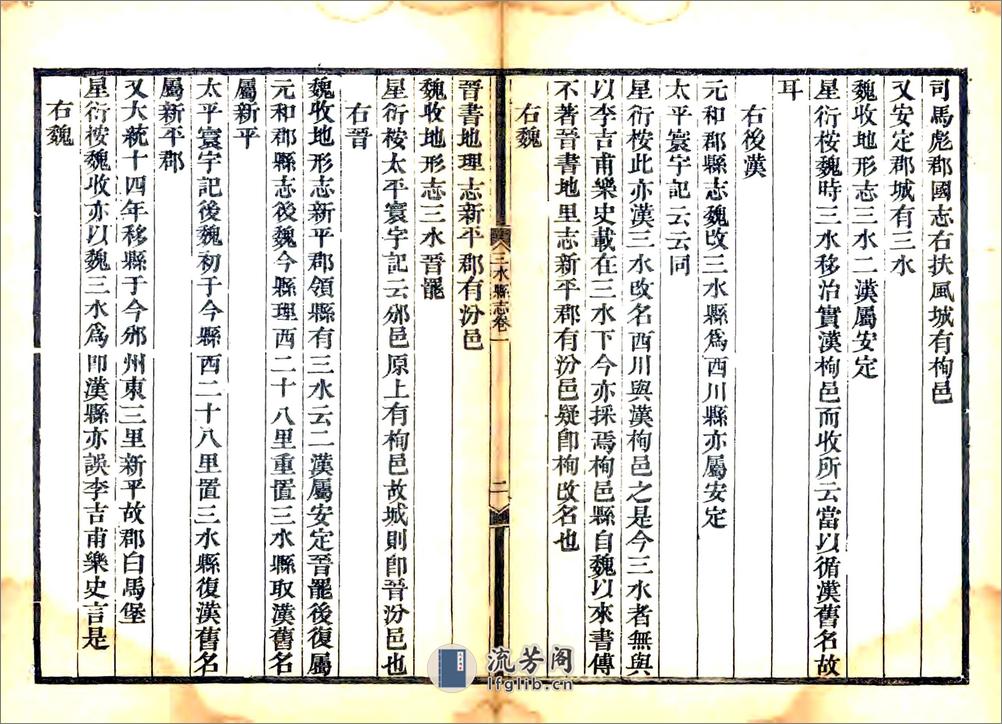 司馬彪郡國志右扶風城有栒邑
又安定郡城有三水
魏收地形志三水二漢屬安定
星衍桉魏時三水移治實漢栒邑而收所云當以循漢舊名故
耳
右後漢
元和郡縣志魏改三水縣爲西川縣亦屬安定
太平寰宇記云云同
星衍桉此亦漢三水改名西川與漢栒邑之是今三水者無與
以李吉甫樂史載在三水下今亦採焉栒邑縣自魏以來書傳
不著晉書地里志新平郡有汾邑疑卽栒改名也
右魏
三水縣志卷一
二
晉書地理志新平郡有汾邑
魏收地形志三水晉罷
星衍桉太平寰宇記云邠邑原上有栒邑故城則卽晉汾邑也
右晉
魏收地形志新平郡領縣有三水云二漢屬安定晉罷後復屬
元和郡縣志後魏今縣理西二十八里重置三水縣取漢舊名
屬新平
太平寰宇記後魏初于今縣西二十八里置三水縣復漢舊名
屬新平郡
又大統十四年移縣于今邠州東三里新平故郡白馬堡
星衍桉魏收亦以魏三水爲卽漢縣亦誤李吉甫樂史言是
右魏
流芳阁
lfglib.cn